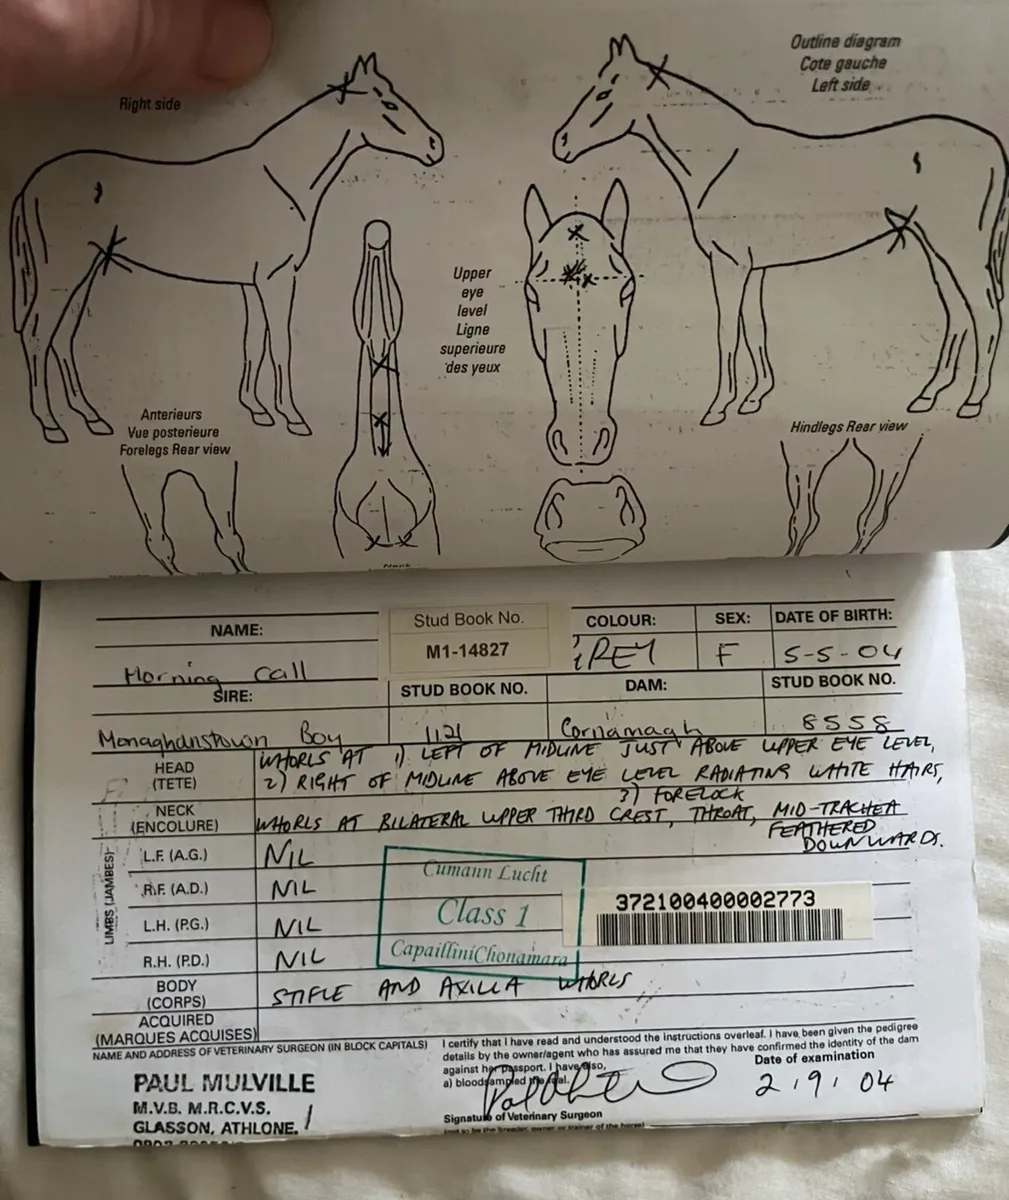 Right side
Outline diagram
Cote gauche
Left side
Upper
eye
level
Ligne
superieure
des yeux
Anterieurs
Vue posterieure
Forelegs Rear view
Hindlegs Rear view
Neck
NAME:
Morning Call
Stud Book No.
M1-14827
COLOUR:
GREY
SEX:
F
DATE OF BIRTH:
5-5-04
SIRE:
Monaghanstown Boy
STUD BOOK NO.
1121
DAM:
Cornamagh
STUD BOOK NO.
8558
HEAD
(TETE)
WHORLS AT 1) LEFT OF MIDLINE JUST ABOVE UPPER EYE LEVEL,
2) RIGHT OF MIDLINE ABOVE EYE LEVEL RADIATING WHITE HAIRS,
3) FORELOCK
NECK
(ENCOLURE)
WHORLS AT BILATERAL UPPER THIRD CREST, THROAT, MID-TRACHEA
FEATHERED
DOWNWARDS.
LIMBS (JAMBES)
L.F. (A.G.)
NIL
R.F. (A.D.)
NIL
L.H. (P.G.)
NIL
R.H. (P.D.)
NIL
Cumann Lucht
Class 1
CapailliníChonamara
372100400002773
BODY
(CORPS)
STIFLE AND AXILLA WHORLS
ACQUIRED
(MARQUES ACQUISES)
NAME AND ADDRESS OF VETERINARY SURGEON (IN BLOCK CAPITALS)
PAUL MULVILLE
M.V.B. M.R.C.V.S.
GLASSON, ATHLONE.
I certify that I have read and understood the instructions overleaf. I have been given the pedigree
details by the owner/agent who has assured me that they have confirmed the identity of the dam
against her passport. I have also,
a) bloodsampled the foal.
Date of examination
2.9.04
Signature of Veterinary Surgeon
(not to be the breeder, owner or trainer of the horse)